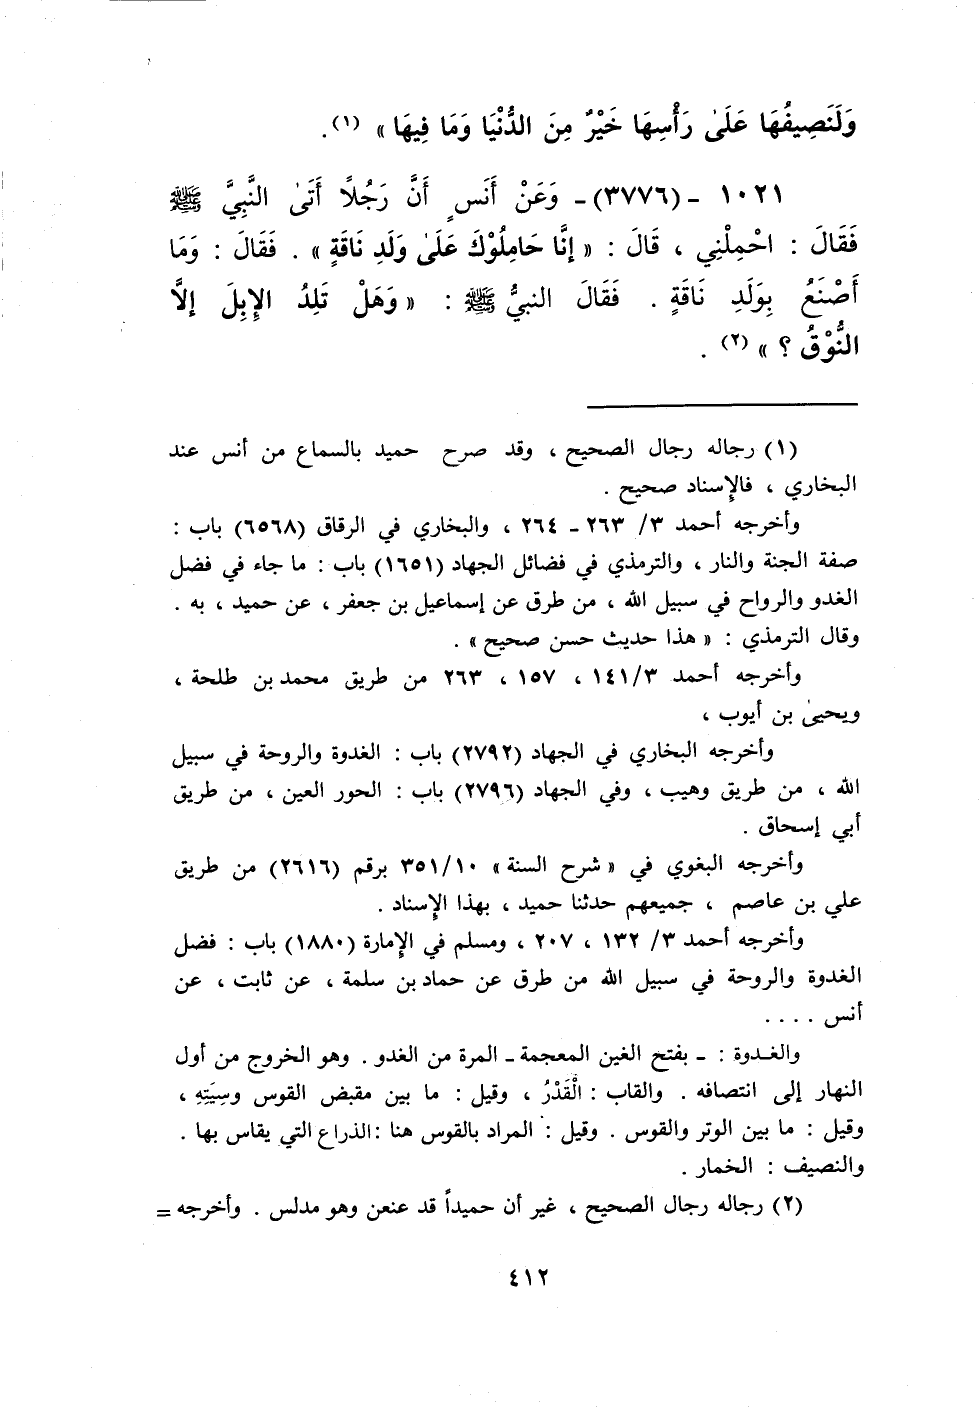 وَلَنَصِيفُهَا عَلَىٰ رَأْسِهَا خَيْرٌ مِنَ الدُّنْيَا وَمَا فِيهَا » (١).
١٠٢١ - (٣٧٧٦)- وَعَنْ أَنَسٍ أَنَّ رَجُلًا أَتَىٰ النَّبِيَّ ﷺ
فَقَالَ : احْمِلْنِي ، قَالَ : « إِنَّا حَامِلُوْكَ عَلَىٰ وَلَدِ نَاقَةٍ » . فَقَالَ : وَمَا
أَصْنَعُ بِوَلَدِ نَاقَةٍ . فَقَالَ النبيُّ ﷺ : « وَهَلْ تَلِدُ الإِبِلَ إلاَّ
النُّوْقُ ؟ » (٢) .
(١) رجاله رجال الصحيح ، وقد صرح حميد بالسماع من أنس عند
البخاري ، فالإسناد صحيح .
وأخرجه أحمد ٣/ ٢٦٣ - ٢٦٤ ، والبخاري في الرقاق (٦٥٦٨) باب :
صفة الجنة والنار ، والترمذي في فضائل الجهاد (١٦٥١) باب : ما جاء في فضل
الغدو والرواح في سبيل الله ، من طرق عن إسماعيل بن جعفر ، عن حميد ، به .
وقال الترمذي : « هذا حديث حسن صحيح » .
وأخرجه أحمد ١٤١/٣ ، ١٥٧ ، ٢٦٣ من طريق محمد بن طلحة ،
ويحيىٰ بن أيوب ،
وأخرجه البخاري في الجهاد (٢٧٩٢) باب : الغدوة والروحة في سبيل
الله ، من طريق وهيب ، وفي الجهاد (٢٧٩٦) باب : الحور العين ، من طريق
أبي إسحاق .
وأخرجه البغوي في « شرح السنة » ٣٥١/١٠ برقم (٢٦١٦) من طريق
علي بن عاصم ، جميعهم حدثنا حميد ، بهذا الإسناد .
وأخرجه أحمد ٣/ ١٣٢ ، ٢٠٧ ، ومسلم في الإمارة (١٨٨٠) باب : فضل
الغدوة والروحة في سبيل الله من طرق عن حماد بن سلمة ، عن ثابت ، عن
أنس . . . .
والغـدوة : - بفتح الغين المعجمة - المرة من الغدو . وهو الخروج من أول
النهار إلى انتصافه . والقاب : الْقَدْرُ ، وقيل : ما بين مقبض القوس وسِيَتِهِ ،
وقيل : ما بين الوتر والقوس . وقيل : المراد بالقوس هنا :الذراع التي يقاس بها .
والنصيف : الخمار .
(٢) رجاله رجال الصحيح ، غير أن حميداً قد عنعن وهو مدلس . وأخرجه =
٤١٢